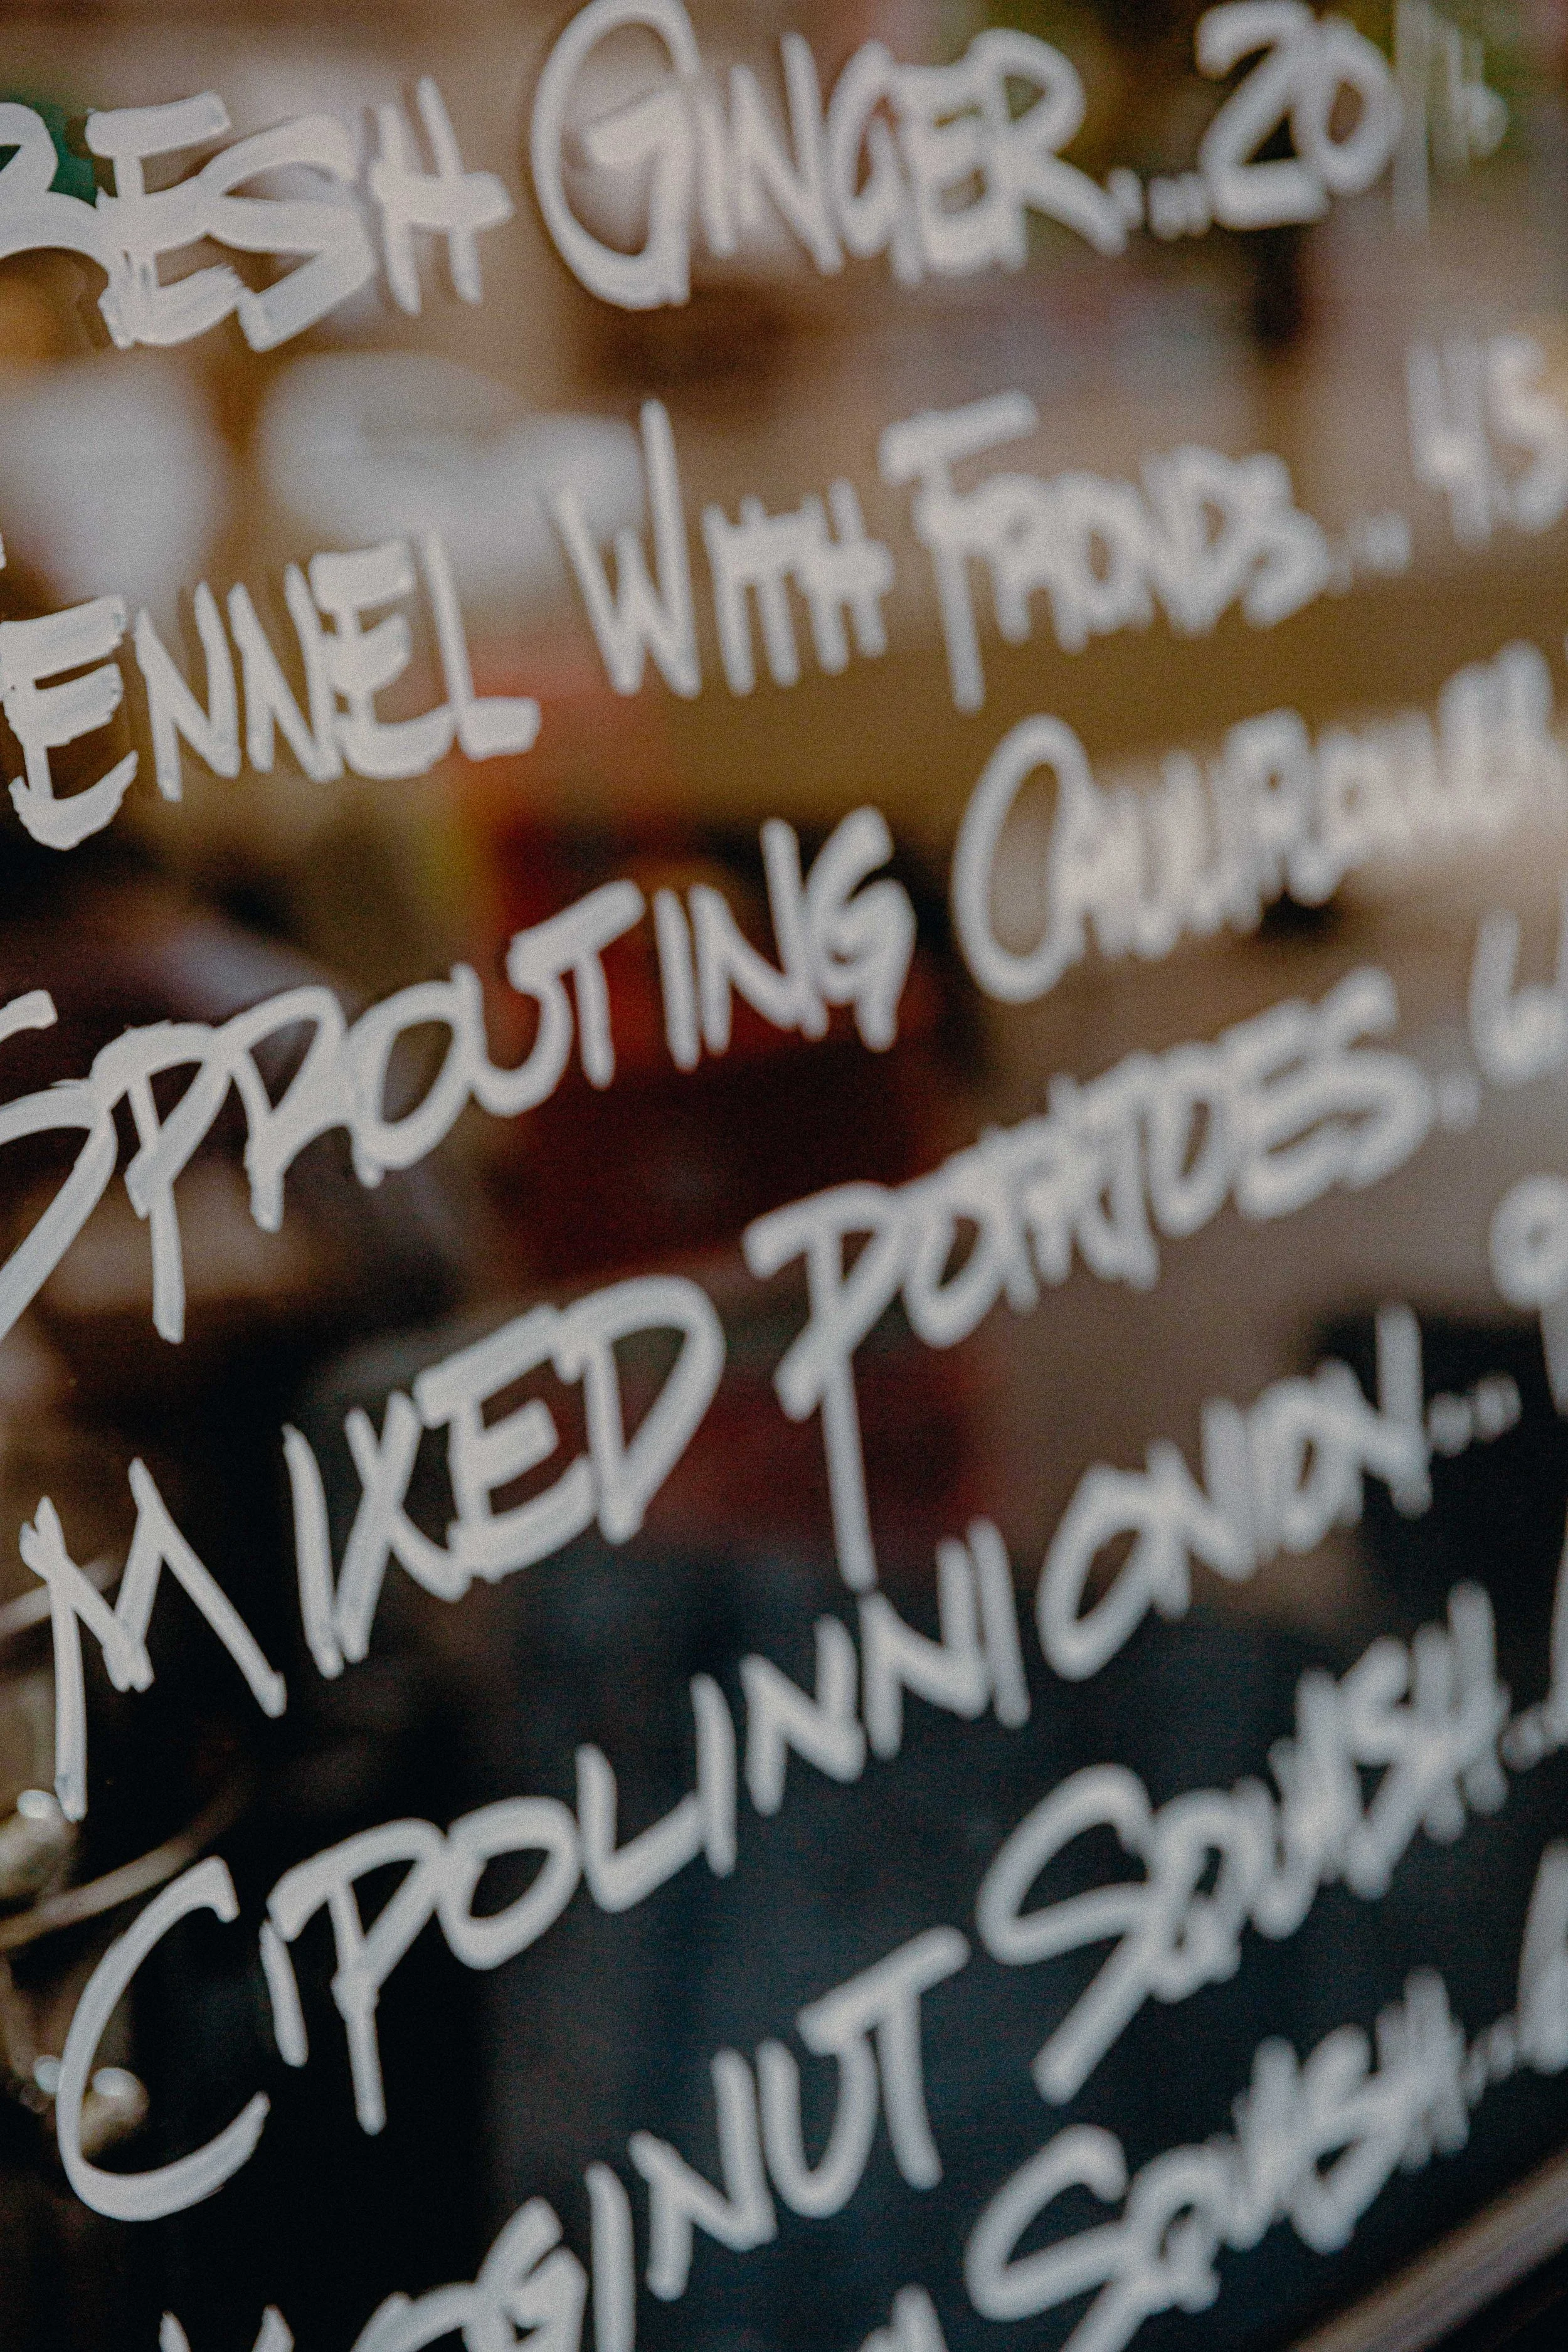 RESH GINGER....20
ENNEL WITH FRONDS... 45
SPROUTING CAULIFLOW
MIXED POTATOES.. 6
CIPOLINNI ONION...
GINUT SQUASH...
SQUASH...